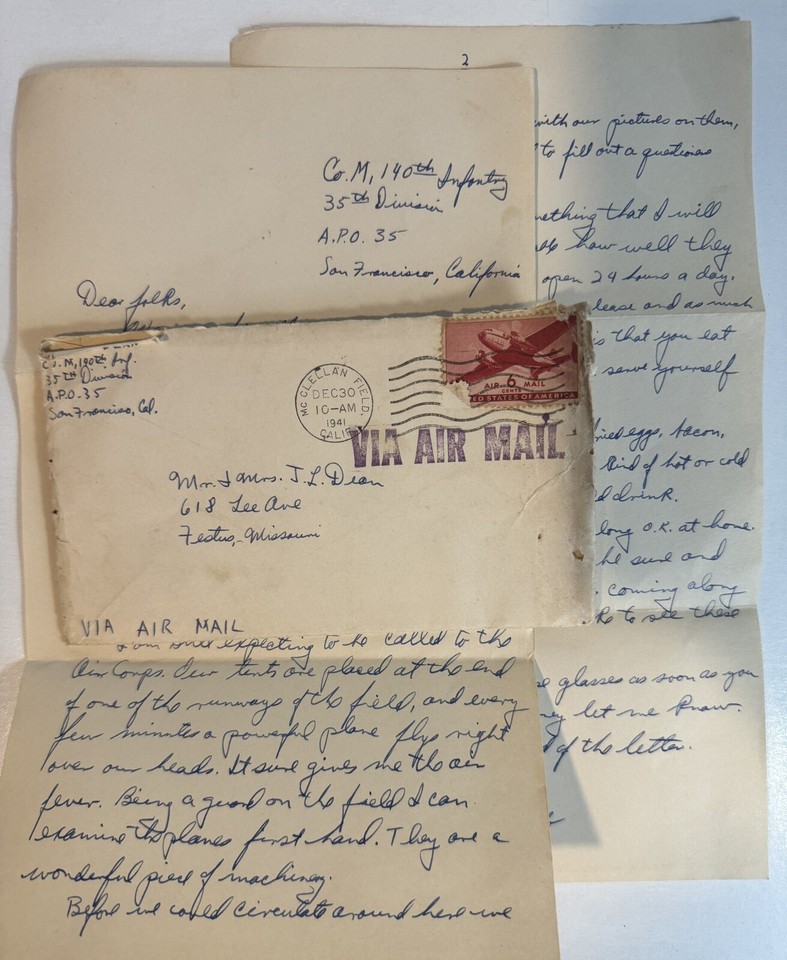 2
with our pictures on them,
to fill out a questionere
Co. M, 140th Infantry
35th Division
A.P.O. 35
San Francisco, California
Dear folks,
mething that I will
how well they
open 24 hours a day.
lease and as much
is that you eat
serve yourself
fried eggs, bacon,
kind of hot or cold
d drink.
long O.K. at home.
be sure and
coming along
to see these
se glasses as soon as you
ney let me know.
of the letter.
Co. M, 140th Inf.
35th Division
A.P.O. 35
San Francisco, Cal.
McCLELLAN FIELD,
DEC 30
10-AM
1941
CALIF.
AIR 6 MAIL
CENTS
ED STATES OF AMERICA
VIA AIR MAIL
Mr. & Mrs. J. L. Dean
618 Lee Ave
Festus, Missouri
VIA AIR MAIL
I am still expecting to be called to the
Air Corps. Our tents are placed at the end
of one of the runways of the field, and every
few minutes a powerful plane flys right
over our heads. It sure gives me the air
fever. Being a guard on the field I can
examine the planes first hand. They are a
wonderful piece of machinery.
Before we could circulate around here we